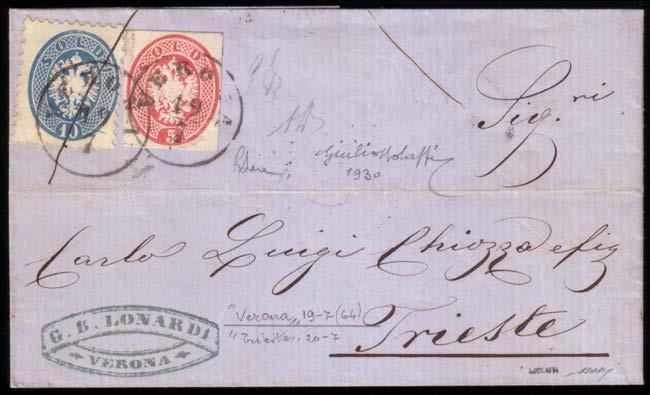 SOLDI
10
SOLDI
5
VERONA
19
7
VERONA
19
7
Sig.ri
Giulio Bolaffi
1930
Carlo Luigi Chiozza e fig
G. B. LONARDI
VERONA
"Verona" 19-7 (64)
"Trieste" 20-7
Trieste
A.BOLAFFI